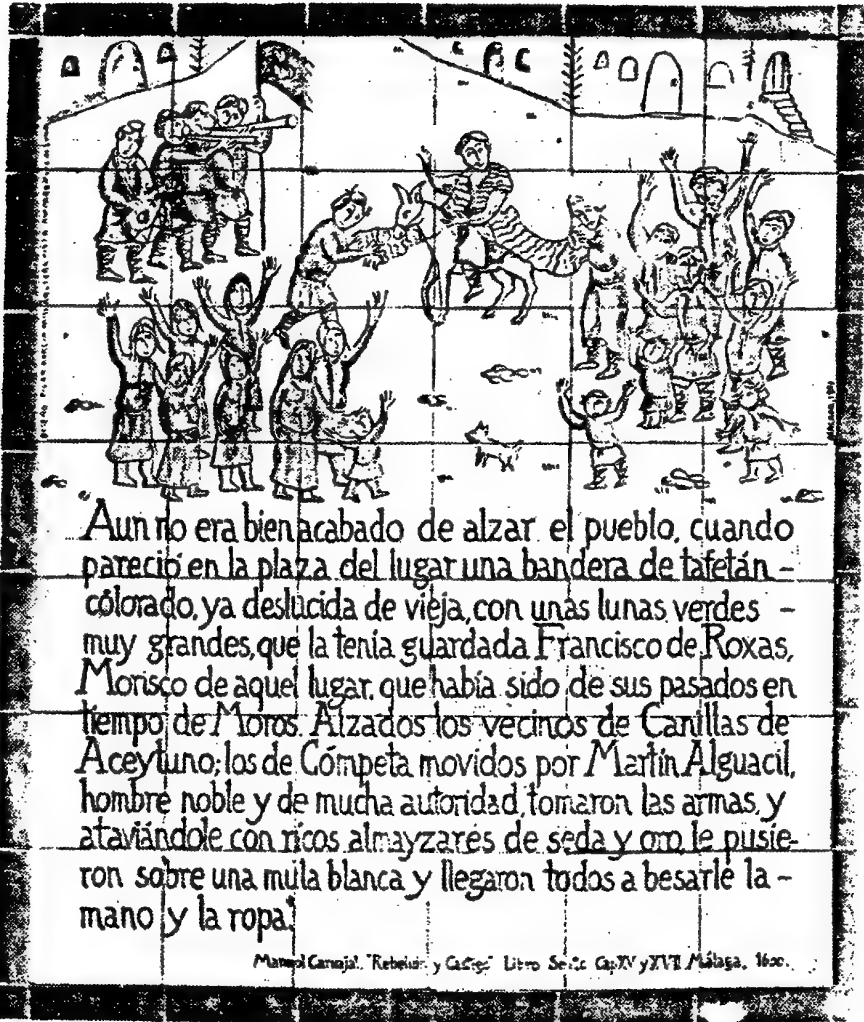 Aun no era bien acabado de alzar el pueblo, cuando
pareció en la plaza del lugar una bandera de tafetán –
colorado, ya deslucida de vieja, con unas lunas verdes –
muy grandes, que la tenia guardada Francisco de Roxas,
Morisco de aquel lugar, que había sido de sus pasados en
tiempo de Moros. Alzados los vecinos de Canillas de
Aceytuno; los de Cómpeta movidos por Martín Alguacil,
hombre noble y de mucha autoridad, tomaron las armas, y
ataviándole con ricos almayzares de seda y oro, le pusie-
ron sobre una mula blanca y llegaron todos a besarle la –
mano y la ropa."
"Rebelión y Castigo" Libro Cap XV y XVII Málaga, 1600.